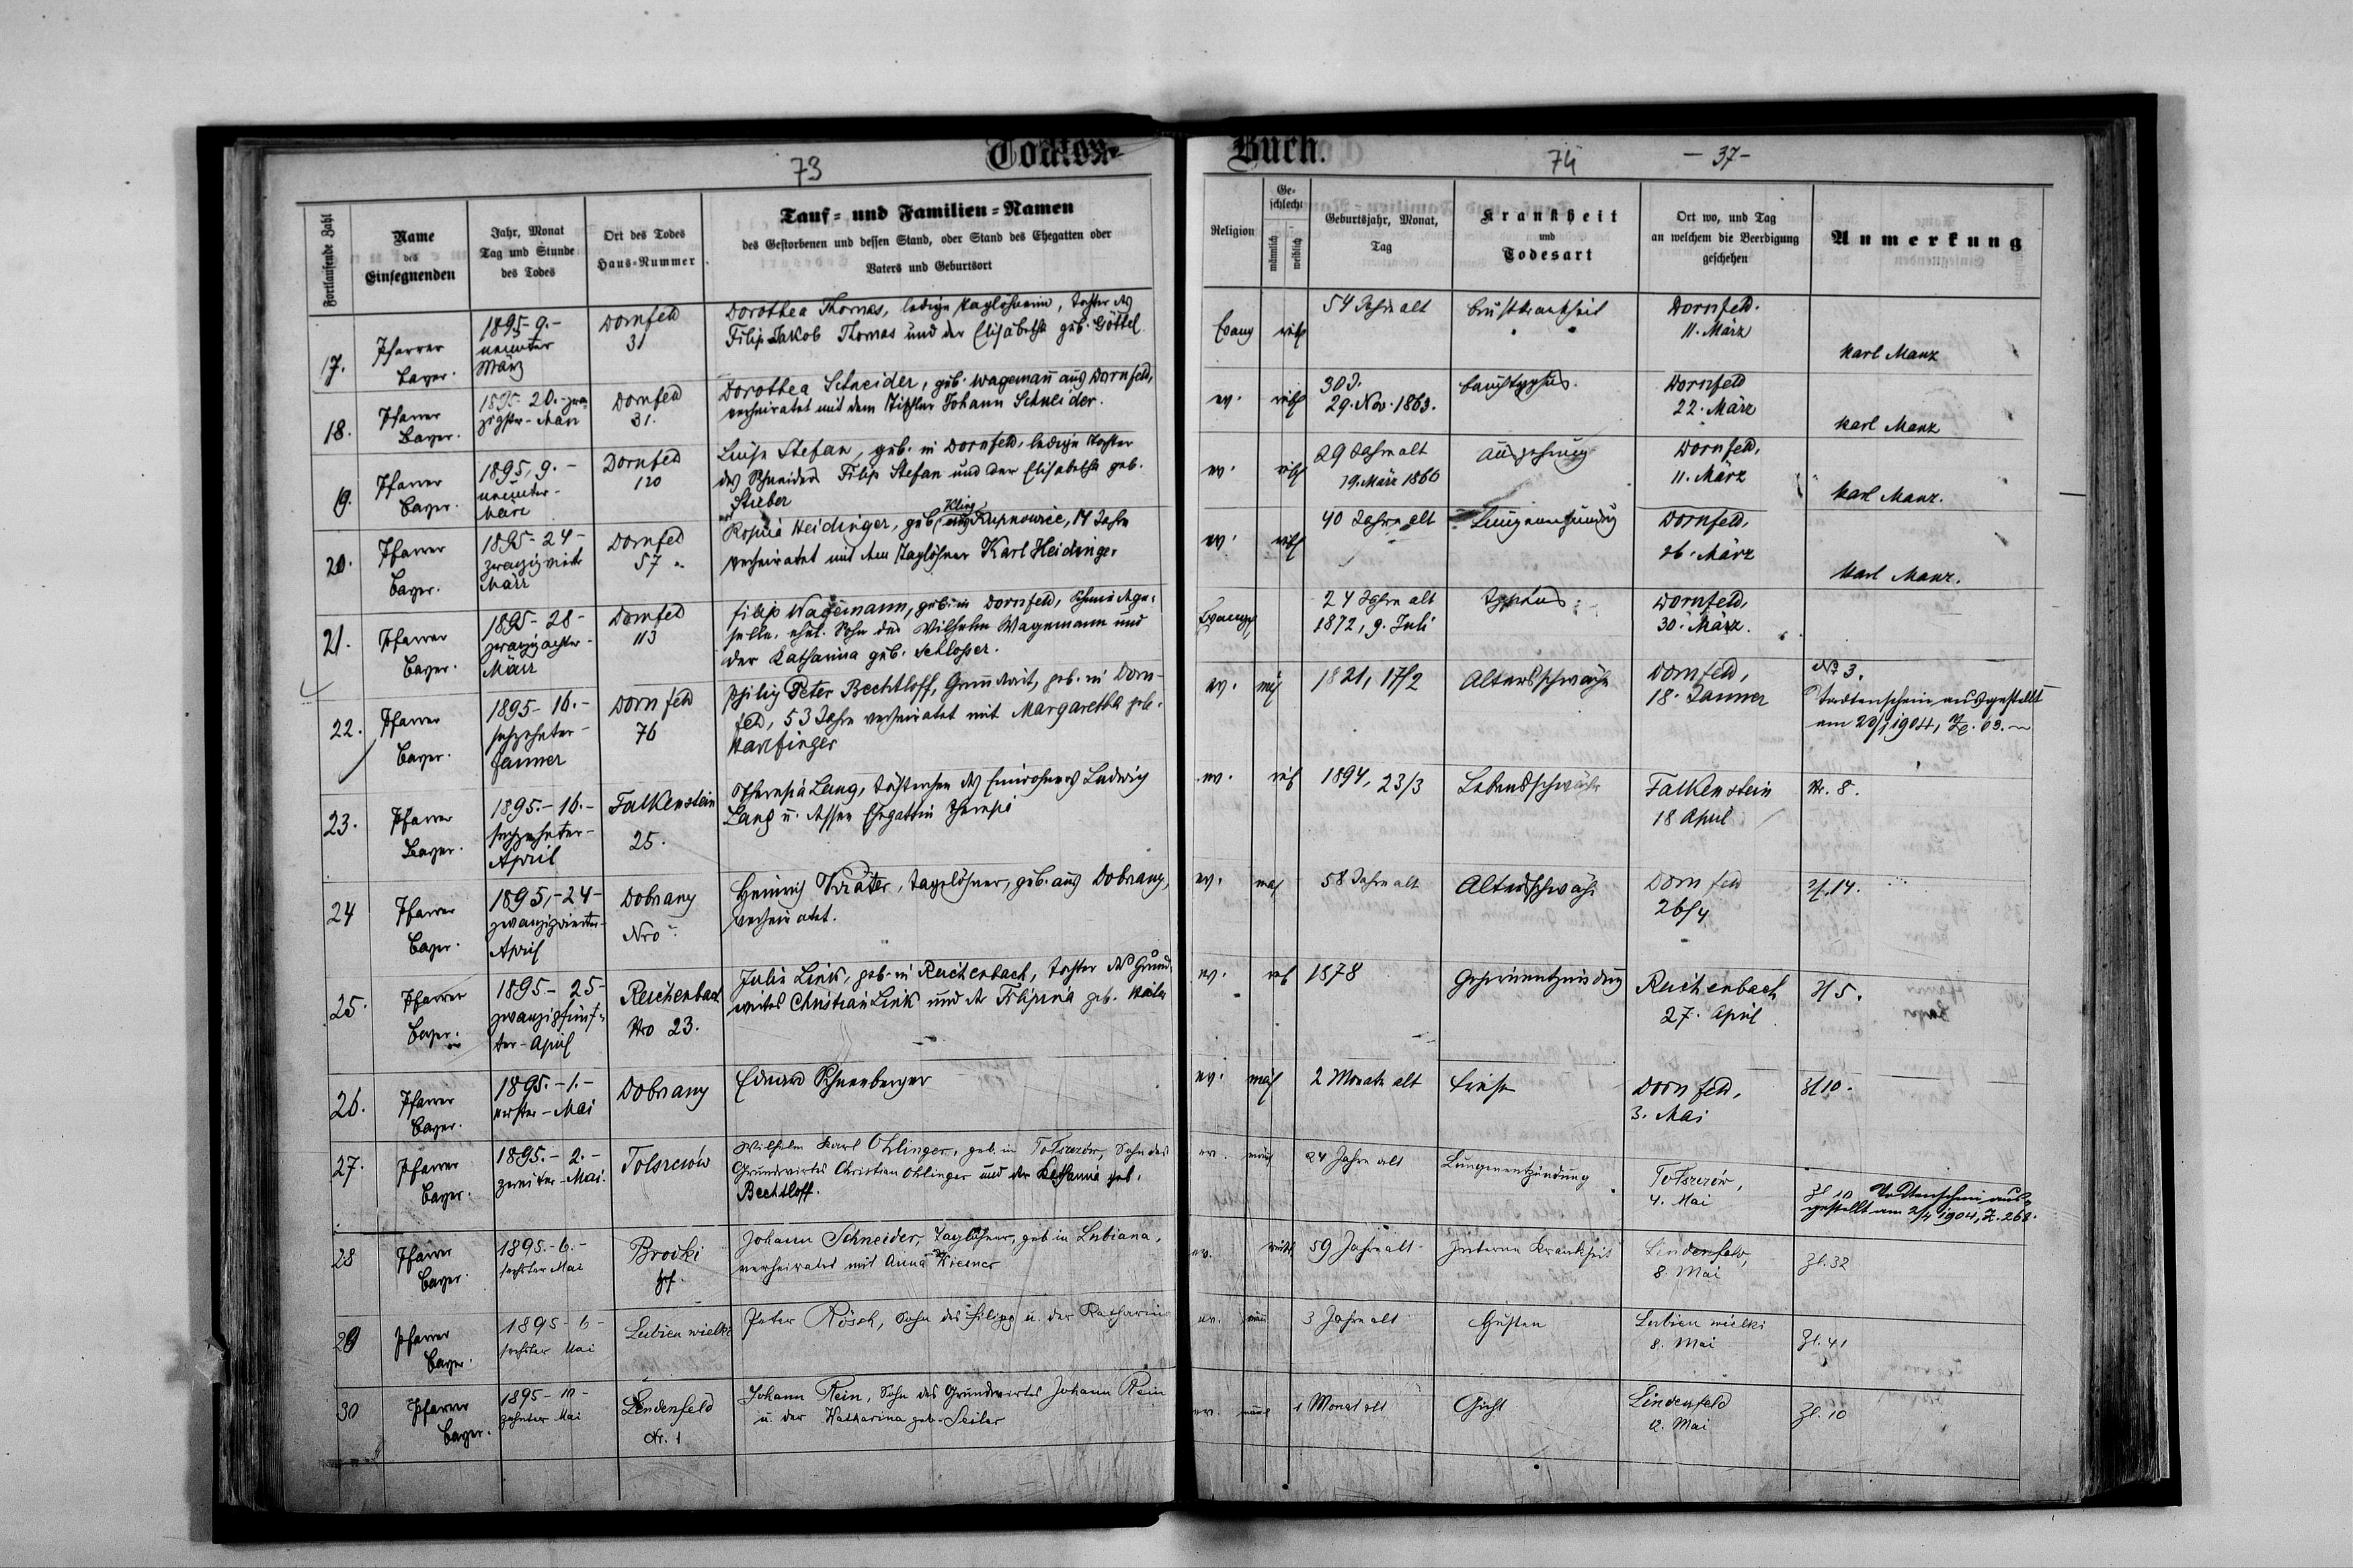 73
Todten-
Fortlaufende Zahl
Name
des
Einsegnenden
Jahr, Monat
Tag und Stunde
des Todes
Ort des Todes
Haus-Nummer
Tauf- und Familien-Namen
des Gestorbenen und dessen Stand, oder Stand des Ehegatten oder
Vaters und Geburtsort
17.
Pfarrer
Bayer.
1895 9.-
neunter
März
Dornfeld
31
Dorothea Thomas, ledige Taglöhnerin, Tochter des
Filip Jakob Thomas und der Elisabetha geb. Göttel
18.
Pfarrer
Bayer.
1895- 20.-zwan
zigster-März
Dornfeld
31.
Dorothea Schneider, geb. Wagemañ aus Dornfeld,
verheiratet mit dem Tischler Johann Schneider.
19.
Pfarrer
Bayer.
1895, 9.-
neunter-
März
Dornfeld
120
Luise Stefan, geb. in Dornfeld, ledige Tochter
des Schneiders Filip Stefan und der Elisabetha geb.
Stieber
20.
Pfarrer
Bayer.
1895- 24-
zwanzigvierter
März
Dornfeld
57
Rosina Heidinger, geb. Kling
14 Jahre
verheiratet mit dem Taglöhner Karl Heidinger
21.
Pfarrer
Bayer.
1895- 28-
zwanzigachter-
März
Dornfeld
113
Filip Wagemann, geb. in Dornfeld, Schmiedge-
selle, ehel. Sohn des Wilhelm Wagemann und
der Katharina geb. Schlosser.
22.
Pfarrer
Bayer.
1895- 16.-
sechzehnter-
Janner
Dornfeld
76
Philip Peter Bechtloff, Grundwirt, geb. in Dorn-
feld, 53 Jahre verheiratet mit Margaretha geb.
Harlfinger
23.
Pfarrer
Bayer.
1895.- 16.-
sechzehnter-
April
Falkenstein
25.
Theresia Lang, Töchterchen des Einwohners Ludwig
Lang u. dessen Ehegattin Theresia
24
Pfarrer
Bayer.
1895,- 24-
zwanzigvierter-
April
Dobrany
Nro
Heinrich Kräter, Tagelöhner, geb. aus Dobrany,
verheiratet.
25.
Pfarrer
Bayer.
1895- 25-
zwanzigfünf-
ter- April
Reichenbach
Nro 23.
Julie Link, geb. in Reichenbach, Tochter des Grund-
wirtes Christian Link und der Filipina geb.
26.
Pfarrer
Bayer.
1895.- 1.-
erster- Mai
Dobrany
Eduard Schneeberger
27.
Pfarrer
Bayer.
1895.- 2.-
zweiter- Mai.
Tolszczów
Wilhelm Karl Ohlinger, geb. in Tolszczów, Sohn des
Grundwirtes Christian Ohlinger und der Katharina geb.
Bechtloff.
28
Pfarrer
Bayer.
1895.- 6.-
sechster Mai
Brodki
Johann Schneider, Taglöhner, geb. in Lubiana,
verheiratet mit Anna geb. Kiesner
29
Pfarrer
Bayer.
1895- 6-
sechster Mai
Lubien wielki
Peter Rösch, Sohn des Filipp u. der Katharina
30
Pfarrer
Bayer.
1895- 10-
zehnter Mai
Lindenfeld
Nr. 1
Johann Rein, Sohn des Grundwirtes Johann Rein
u. der Katharina geb. Seiler
Buch.
74
- 37 -
Religion
Ge-
schlecht
männlich
weiblich
Geburtsjahr, Monat,
Tag
Krankheit
und
Todesart
Ort wo, und Tag
an welchem die Beerdigung
geschehen
Anmerkung
Evang
weibl
54 Jahre alt
Brustkrankheit
Dornfeld.
11. März
Karl Manz
ev.
weibl
30 J.
29. Nov. 1863.
Bauchtyphus.
Dornfeld
22. März
Karl Manz
ev.
weibl
29 Jahre alt
19. März 1866
Auszehrung
Dornfeld,
11. März
Karl Manz.
ev.
weibl
40 Jahre alt
Lungenentzündung
Dornfeld,
26. März
Karl Manz.
Evang
24 Jahre alt
1872, 9. Juli
Typhus
Dornfeld,
30. März.
ev.
1821, 17/2
Altersschwäche
Dornfeld,
18. Janner
No 3.
Todtenschein ausgestellt
am 20/1 1904, Z. 03.
ev.
1894, 23/3
Lebensschwäche
Falkenstein
18 April
Nr. 8.
ev.
58 Jahre alt
Altersschwäche
Dornfeld
26/4
Zl. 14.
ev.
1878
Gehirnentzündung
Reichenbach
27. April
Zl 5.
ev.
2 Monate alt
Dornfeld,
3. Mai
Zl 10.
ev.
24 Jahre alt
Lungenentzündung
Tolszczów,
4. Mai
Zl 10 Todtenschein aus-
gestellt am 2/4 1904, Z. 268.
ev.
59 Jahre alt
Interne Krankheit
Lindenfeld,
8. Mai
Zl. 32
ev.
3 Jahre alt
Husten
Lubien wielki
8. Mai
Zl. 41
ev.
1 Monat alt
Gicht
Lindenfeld
12. Mai
Zl. 10